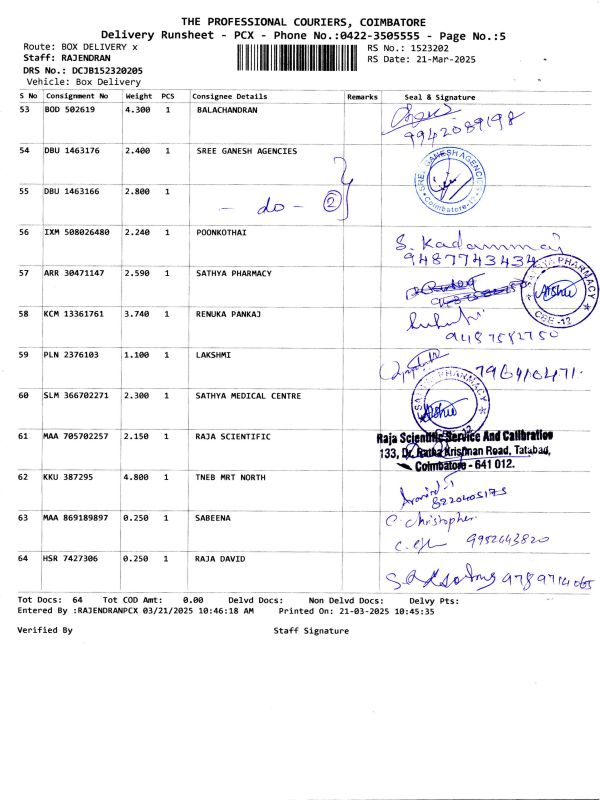 THE PROFESSIONAL COURIERS, COIMBATORE
Delivery Runsheet - PCX - Phone No.:0422-3505555 - Page No.:5
Route: BOX DELIVERY x RS No.: 1523202
Staff: RAJENDRAN RS Date: 21-Mar-2025
DRS No.: DCJB152320205
Vehicle: Box Delivery
S No Consignment No Weight PCS Consignee Details Remarks Seal & Signature
53 BOD 502619 4.300 1 BALACHANDRAN
9942089198
54 DBU 1463176 2.400 1 SREE GANESH AGENCIES
SREE GANESH AGENCIES Coimbatore-12
55 DBU 1463166 2.800 1
- do - 2
56 IXM 508026480 2.240 1 POONKOTHAI
S. Kadammai
9487743434
57 ARR 30471147 2.590 1 SATHYA PHARMACY
SATHYA PHARMACY CBE-12
58 KCM 13361761 3.740 1 RENUKA PANKAJ
9487582750
59 PLN 2376103 1.100 1 LAKSHMI
60 SLM 366702271 2.300 1 SATHYA MEDICAL CENTRE
PHARMACY
61 MAA 705702257 2.150 1 RAJA SCIENTIFIC
Raja Scientific Service And Calibration
133, Dr. Ratha Krishnan Road, Tatabad,
Coimbatore - 641 012.
62 KKU 387295 4.800 1 TNEB MRT NORTH
Aravind.T
8220405175
63 MAA 869189897 0.250 1 SABEENA
C. Christopher
9952643820
64 HSR 7427306 0.250 1 RAJA DAVID
9789714065
Tot Docs: 64 Tot COD Amt: 0.00 Delvd Docs: Non Delvd Docs: Delvy Pts:
Entered By :RAJENDRANPCX 03/21/2025 10:46:18 AM Printed On: 21-03-2025 10:45:35
Verified By Staff Signature